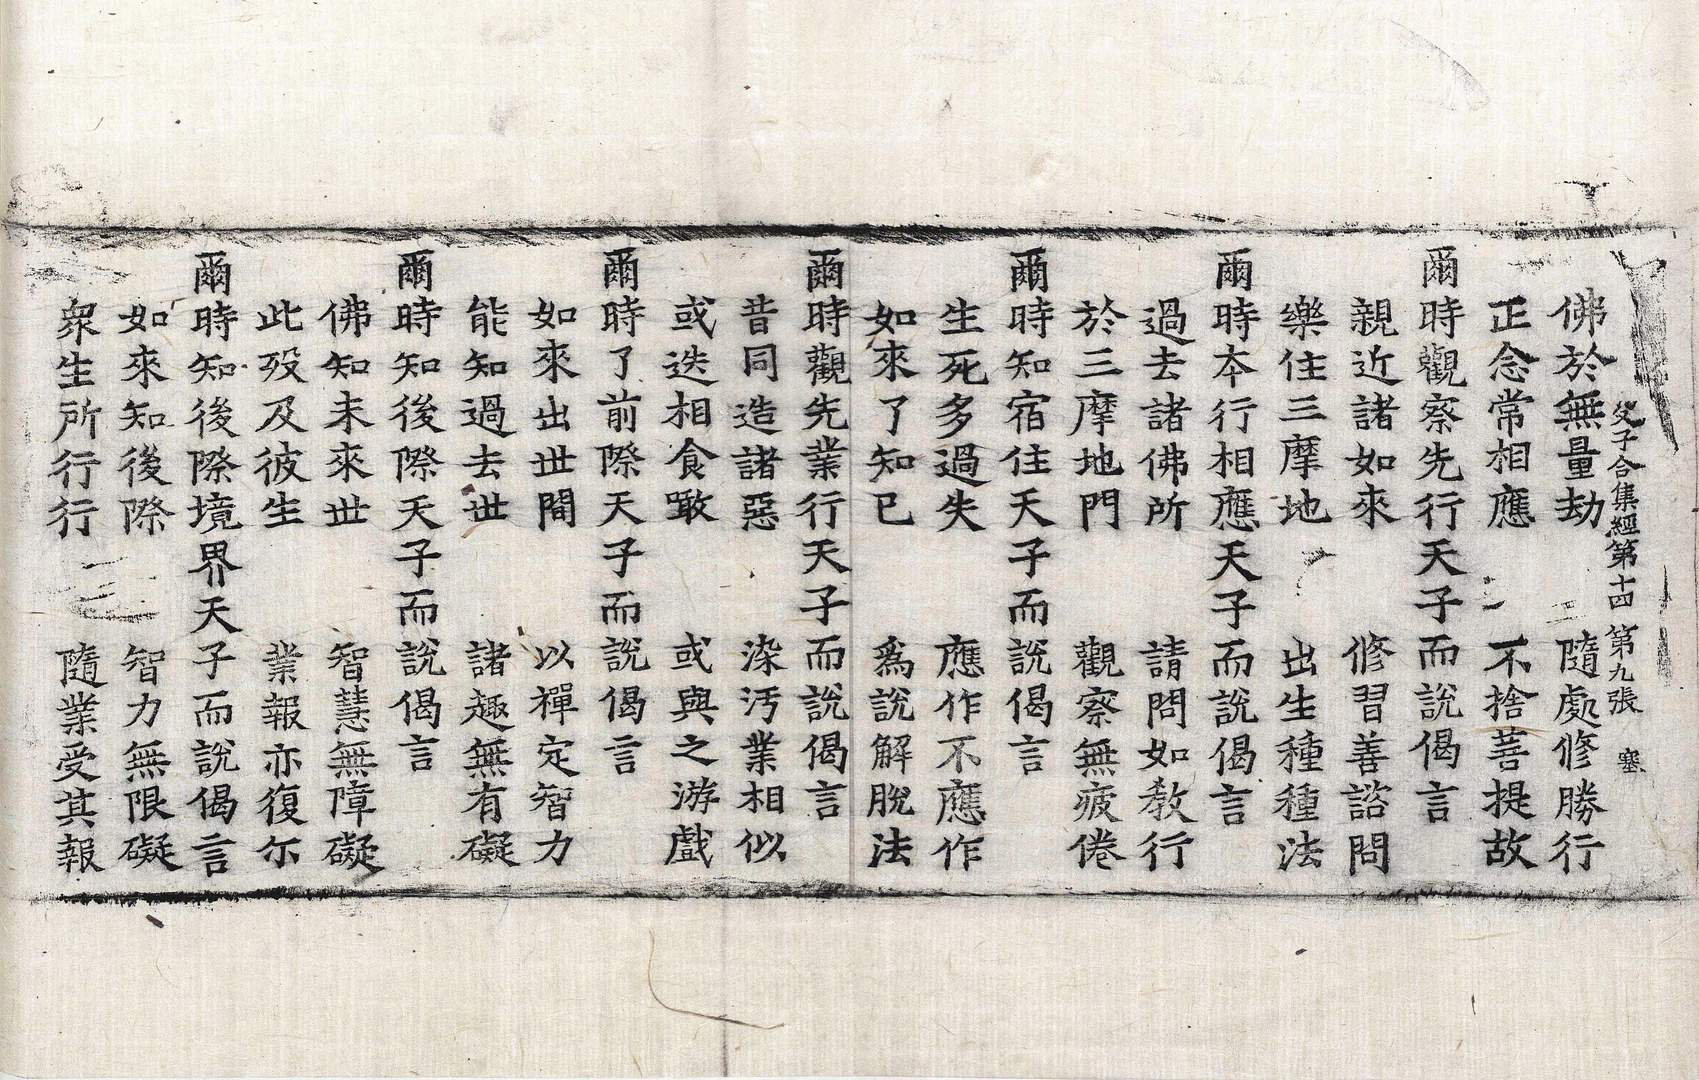 父子合集經第十四 第九張 塞
佛於無量劫 隨處修勝行
正念常相應 不捨菩提故
爾時觀察先行天子而說偈言
親近諸如來 修習善諮問
樂住三摩地 出生種種法
爾時本行相應天子而說偈言
過去諸佛所 請問如教行
於三摩地門 觀察無疲倦
爾時知宿住天子而說偈言
生死多過失 應作不應作
如來了知已 為說解脫法
爾時觀先業行天子而說偈言
昔同造諸惡 染汚業相似
或迭相食噉 或與之游戲
爾時了前際天子而說偈言
如來出世間 以禪定智力
能知過去世 諸趣無有礙
爾時知後際天子而說偈言
佛知未來世 智慧無障礙
此歿及彼生 業報亦復尒
爾時知後際境界天子而說偈言
如來知後際 智力無限礙
衆生所行行 隨業受其報